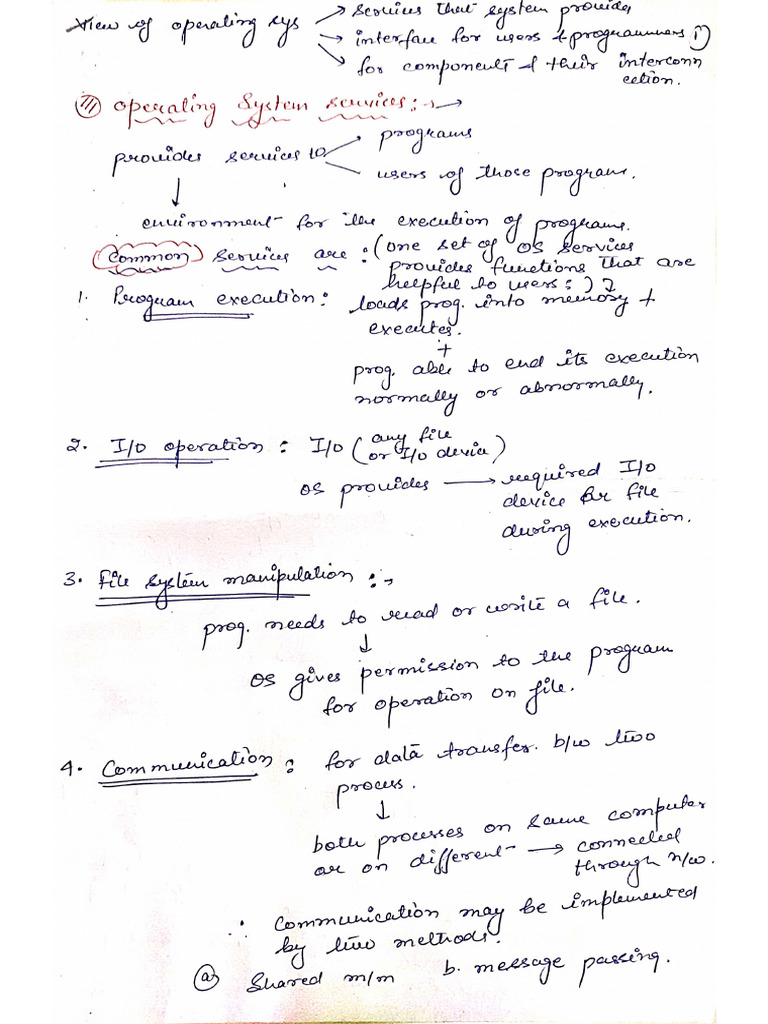 View of operating sys → services that system provides
→ interface for users & programmers ①
→ for components & their interconn
ection.
Ⅲ operating System services :- →
provides services to → programs
→ users of those program.
↓
environment for the execution of programs.
Common services are : (one set of OS services
provides functions that are
helpful to users : )
1. Program execution : loads prog. into memory +
executes.
+
prog. able to end its execution
normally or abnormally.
2. I/O operation : I/O ( any file
or I/O device )
OS provides → required I/O
device or file
during execution.
3. File system manipulation :-
prog. needs to read or write a file.
↓
OS gives permission to the program
for operation on file.
4. Communication : for data transfer. b/w two
process.
↓
both processes on same computer
or on different → connected
through n/w.
∴ Communication may be implemented
by two methods.
(a) Shared m/m b. message passing.